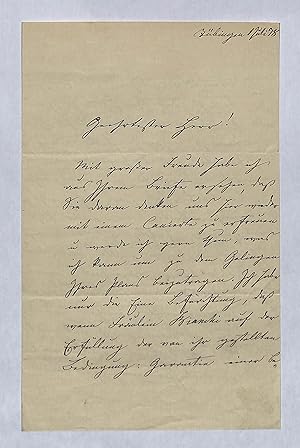 Tübingen 1 Juli 78
Geehrtester Herr!
Mit großer Freude habe ich
aus Ihrem Briefe ersehen, daß
Sie daran denken uns hier wieder
mit einem Concerte zu erfreuen
u werde ich gern thun, was
ich kann um zu dem Gelingen
Ihres Plans beizutragen. Ich habe
nur die Eine Befürchtung, daß
wenn Fräulein Kiancki auf der
Erfüllung der von ihr gestellten
Bedingung: Garantie einer